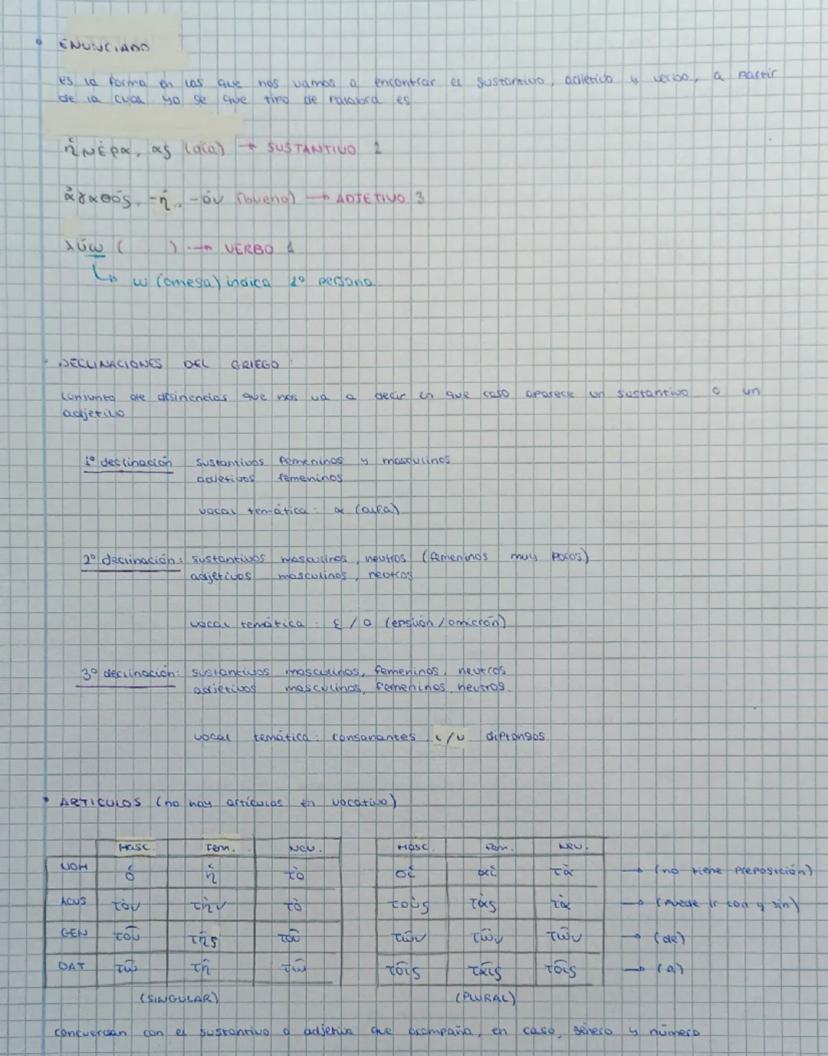 • ENUNCIADO
es la forma en las que nos vamos a encontrar el sustantivo, adjetivo y verbo, a partir
de la cual yo se que tipo de palabra es
ἡμέρα, ας (día) → SUSTANTIVO 2
ἀγαθός, -ή, -όν (bueno) → ADJETIVO 3
λύω ( ) → VERBO 1
↳ ω (omega) indica 1º persona
• DECLINACIONES DEL GRIEGO:
conjunto de desinencias que nos va a decir en que caso aparece un sustantivo o un
adjetivo
1º declinación sustantivos femeninos y masculinos
adjetivos femeninos
vocal temática: α (alfa)
2º declinación: sustantivos masculinos, neutros (femeninos muy pocos)
adjetivos masculinos, neutros
vocal temática: ε/ο (épsilon/omicrón)
3º declinación: sustantivos masculinos, femeninos, neutros
adjetivos masculinos, femeninos, neutros.
vocal temática: consonantes ι/υ diptongos
• ARTICULOS (no hay artículos en vocativo)
Masc. Fem. Neu. Masc. Fem. Neu.
NOM ὁ ἡ τὸ οἱ αἱ τὰ → (no tiene preposición)
ACUS τὸν τὴν τὸ τοὺς τὰς τὰ → (puede ir con y sin)
GEN τοῦ τῆς τοῦ τῶν τῶν τῶν → (de)
DAT τῶ τῆ τῶ τοῖς ταῖς τοῖς → (a)
(SINGULAR) (PLURAL)
concuerdan con el sustantivo o adjetivo que acompaña, en caso, género y número